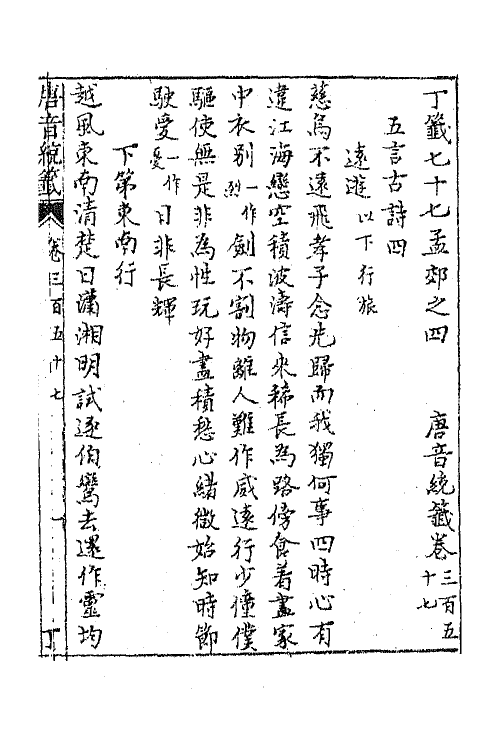 丁籤七十七孟郊之四　唐音統籤卷三百五十七
五言古詩四
遠遊以下行旅
慈烏不遠飛孝子念先歸而我獨何事四時心有
違江海戀空積波濤信來稀長為路傍食着盡家
中衣別一作烈劍不割物離人難作威遠行少僮僕
驅使無是非為性玩好盡積愁心緒微始知時節
駛愛一作憂日非長輝
下第東南行
越風東南清楚日瀟湘明試逐伯鸞去還作靈均
唐音統籤　卷三百五十七　一　丁